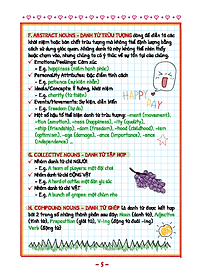 F. ABSTRACT NOUNS - DANH TỪ TRỪU TƯỢNG dùng để diễn tả các
khái niệm hoặc bản chất trừu tượng mà không thể định lượng bằng
cách sử dụng giác quan. Những danh từ này không thể nhìn thấy
hoặc chạm vào, nhưng chúng ta có ý thức về sự tồn tại của chúng.
Emotions/Feelings: Cảm xúc
- E.g. happiness (niềm hạnh phúc)
Personality Attributes: Đặc điểm tính cách
- E.g. patience (sự kiên nhẫn)
Ideas/Concepts: Ý tưởng, khái niệm
- E.g. charity (từ thiện)
Events/Movements: Sự kiện, diễn biến
- E.g. freedom (sự tự do)
Một số hậu tố thể hiện danh từ trừu tượng: -ment (movement),
-tion (emotion), -ness (happiness), -ity (quality),
-ship (friendship), -dom (freedom), -hood (childhood), -ism
(optimism), -age (damage), -ance (importance), -ence
(independence)
HAPPY
DAY
G. COLLECTIVE NOUNS - DANH TỪ TẬP HỢP
Nhóm danh từ chỉ NGƯỜI
- E.g. A team of players: một đội chơi
Nhóm danh từ chỉ ĐỘNG VẬT
- E.g. A herd of cattle: một đàn gia súc
Nhóm danh từ chỉ VẬT
- E.g. A bunch of grapes: một chùm nho
H. COMPOUND NOUNS - DANH TỪ GHÉP là danh từ được kết hợp
bởi 2 trong số những thành phần sau đây: Noun (danh từ), Adjective
(tính từ), Preposition (giới từ), V-ing (động từ đuôi -ing)
Verb (động từ)
- 5 -